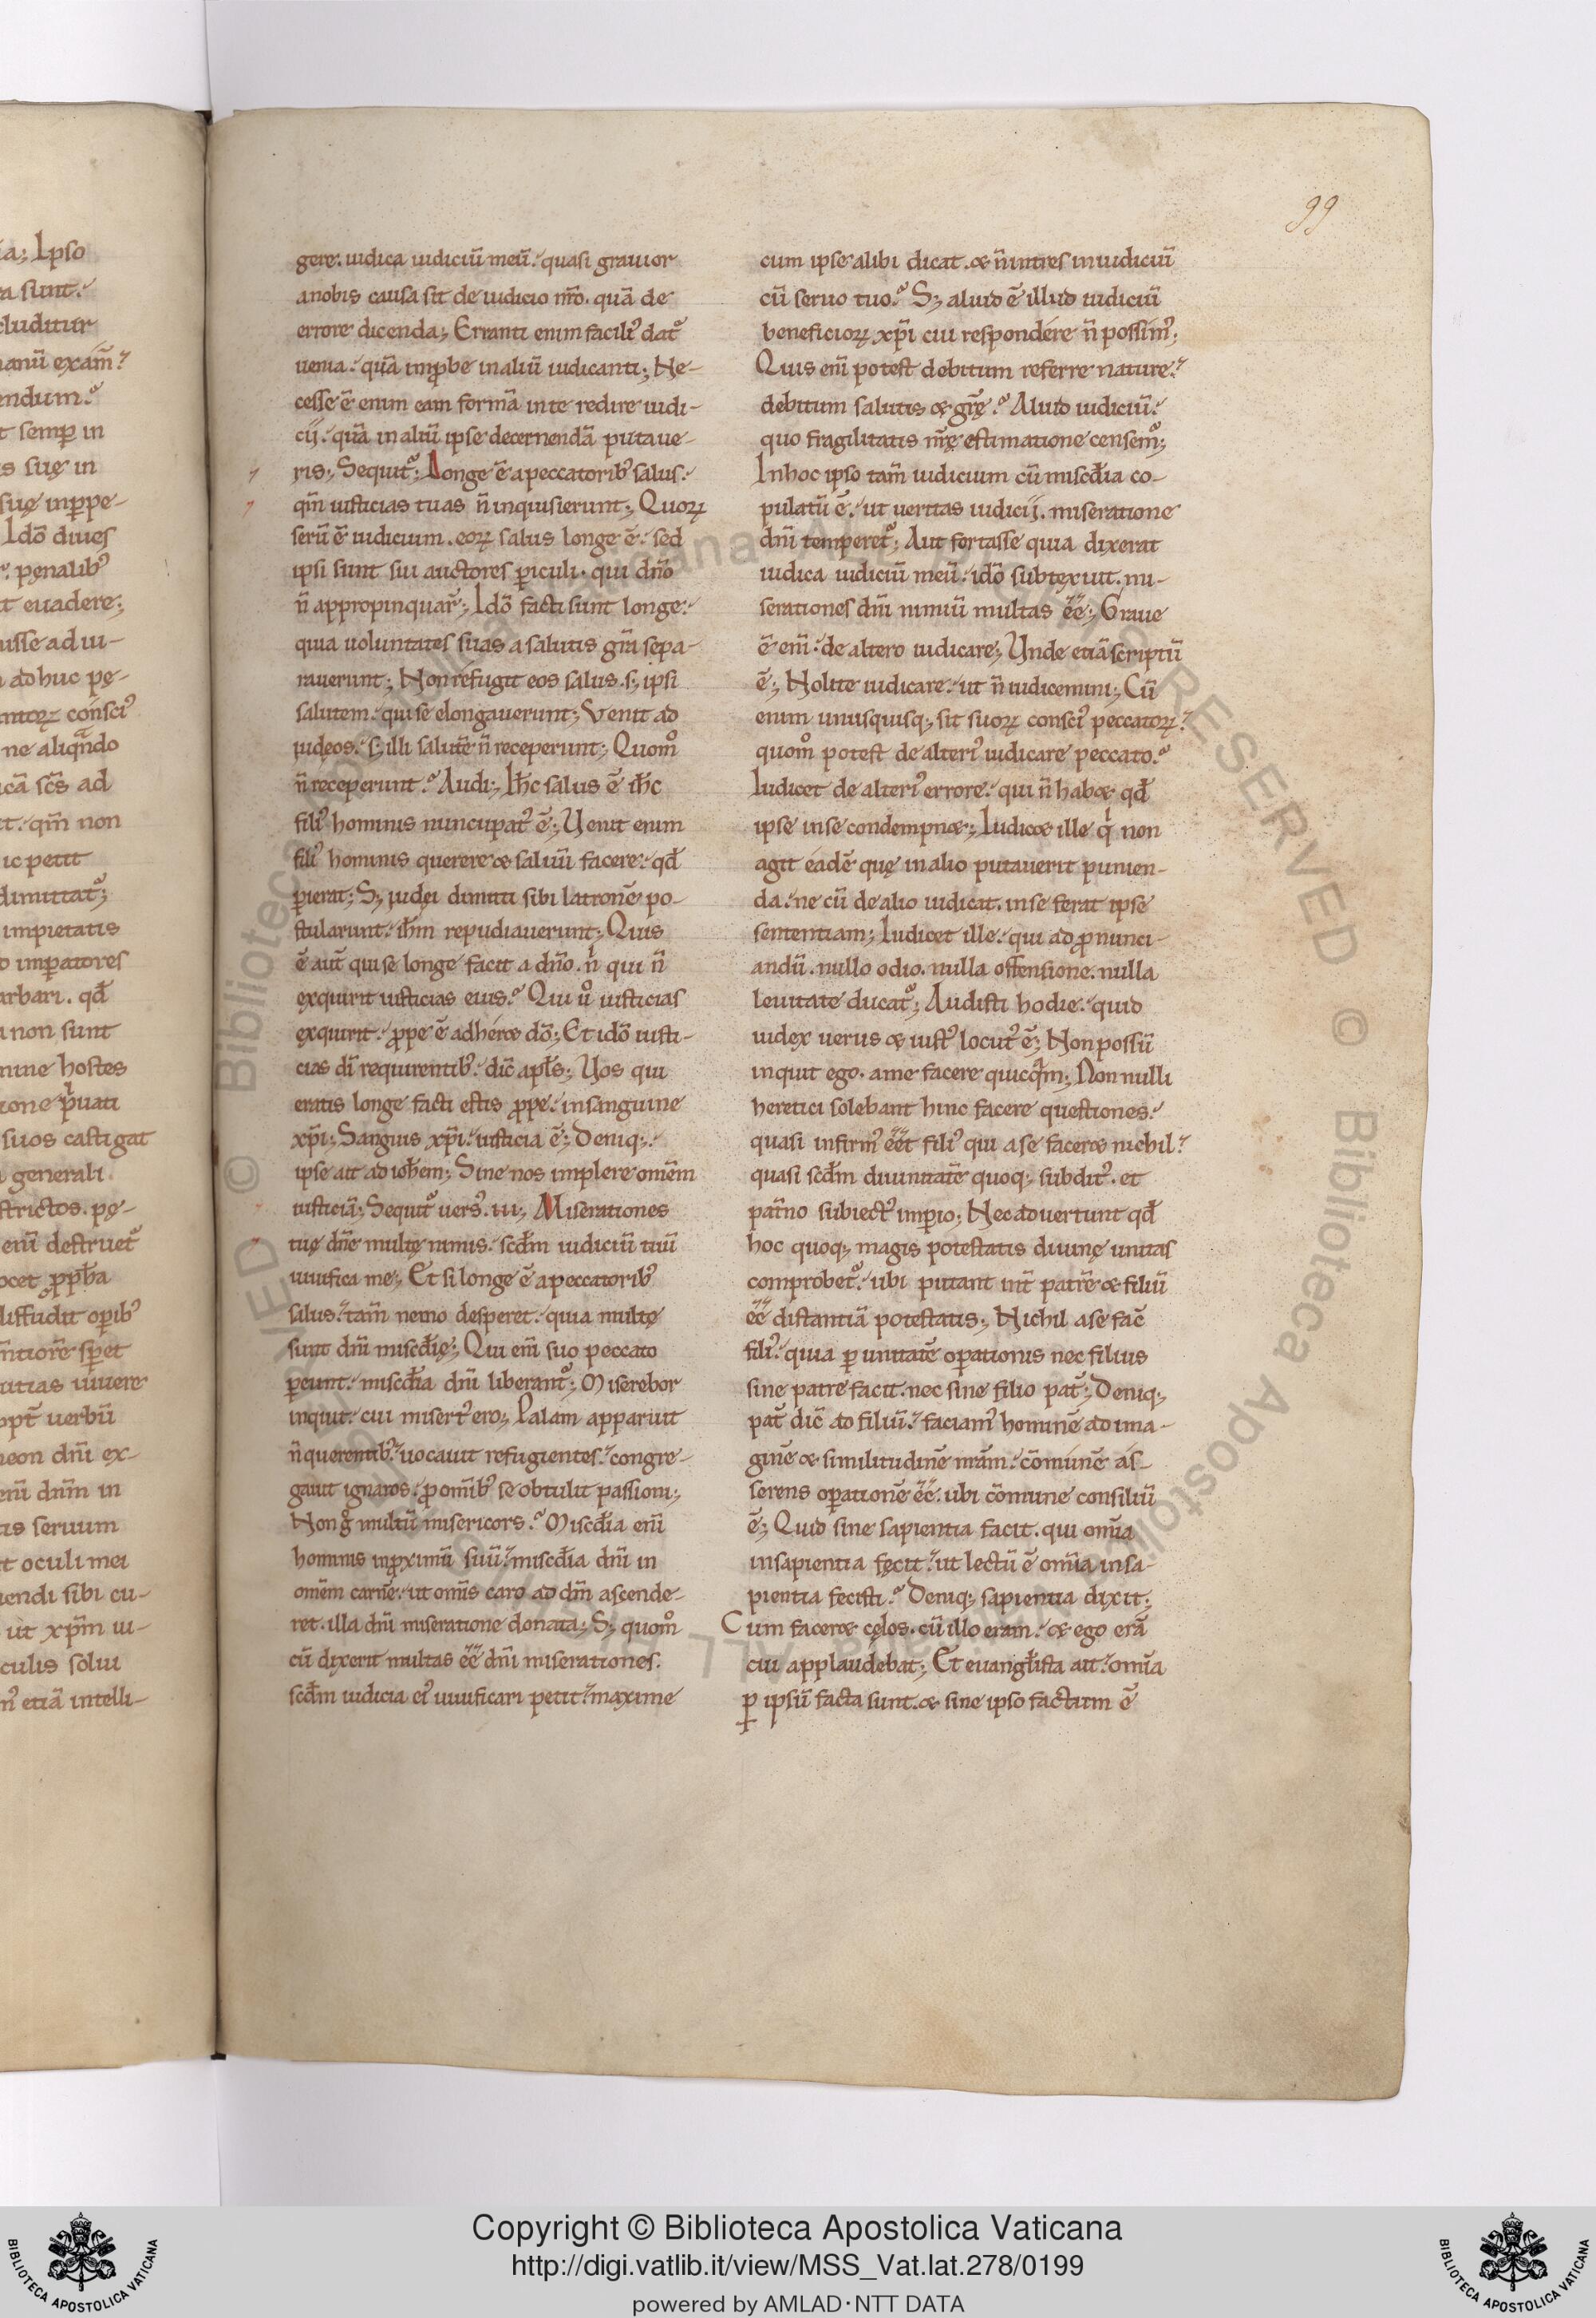 99
gere. iudica iudiciū meū. quasi grauior
a nobis causa sit de iudicio nr̄o. quā de
errore dicenda; Erranti enim facili᷒ dat᷑
uenia. quā improbe in aliū iudicanti; Ne-
cesse ē enim eam formā in te redire iudi-
cij. quā in aliū ipse decernendā putaue-
ris; Sequit᷑; Longe ē a peccatorib᷒ salus.
qm̄ iusticias tuas n̄ inquisierunt; Quoꝝ
serū ē iudicium. eoꝝ salus longe ē. sed
ipsi sunt sui auctores ꝑiculi. qui dn̄o
n̄ appropinquar̄; Idō facti sunt longe.
quia uoluntates suas a salutis gr̄a sepa-
rauerunt; Non refugit eos salus. s; ipsi
salutem. qui se elongauerunt; Venit ad
iudęos. s; illi salutē n̄ receperunt; Quom̊
n̄ receperunt? Audi; Ih̄c salus ē ih̄c
fili᷒ hominis nuncupat᷒ ē; Uenit enim
fili᷒ hominis querere & saluū facere. qđ
ꝑierat; S; iudei dimitti sibi latronē po-
stularunt. ih̄m repudiauerunt; Quis
ē aut̄ qui se longe facit a dn̄o. nͥ qui n̄
exquirit iusticias eius? Qui ů iusticias
exquirit. ꝓpe ē adhér& dō; Et idō iusti-
cias dī requirentib᷒. dic̄ apl̄s; Uos qui
eratis longe facti estis ꝓpe. in sanguine
xp̄i; Sanguis xp̄i. iusticia ē; Deniq;.
ipse ait ad ioh̄em; Sine nos implere omēm
iusticiā; Sequit᷑ uers᷒. iii; Miserationes
tuę dn̄e multę nimis. scđm iudiciū tuū
uiuifica me; Et si longe ē a peccatorib᷒
salus. tam̄ nemo desperet. quia multę
sunt dn̄i misc̄dię; Qui em̄ suo peccato
ꝑeunt. misc̄dia dn̄i liberant᷑; Miserebor
inquit. cui misert᷒ ero; Palam apparuit
n̄ querentib᷒. uocauit refugientes. congre-
gauit ignaros. ꝓ omīb᷒ se obtulit passioni;
Non g̊ multū misericors? Misc̄dia em̄
hominis in ꝓximū suū. misc̄dia dn̄i in
omēm carnē. ut omīs caro ad dm̄ ascende-
ret. illa dn̄i miseratione donata; S; quom̊
cū dixerit multas ēē dn̄i miserationes.
scđm iudicia ei᷒ uiuificari petit. maxime
cum ipse alibi dicat. & n̄ intres in iudiciū
cū seruo tuo? S; aliud ē illud iudiciū
beneficioꝝ xp̄i cui respondére n̄ possim᷒;
Quis em̄ potest debitum referre nature.
debitum salutis & gr̄ę? Aliud iudiciū.
quo fragilitatis nr̄ę estimatione censem᷒;
In hoc ipso tam̄ iudicium cū misc̄dia co-
pulatū ē. ut ueritas iudicij. miseratione
dn̄i temperet᷑; Aut fortasse quia dixerat
iudica iudiciū meū. idō subtexuit. mi-
serationes dn̄i nimiū multas ēē; Graue
ē em̄. de altero iudicare; Unde etiā scriptū
ē; Nolite iudicare. ut n̄ iudicemini; Cū
enim unusquisq; sit suoꝝ consci᷒ peccatoꝝ.
quom̊ potest de alteri᷒ iudicare peccato?
Iudicet de alteri᷒ errore. qui n̄ hab& qđ
ipse in se condempn&; Iudic& ille qͥ non
agit éadē quę in alio putauerit punien-
da. ne cū de alio iudicat. in se ferat ipse
sententiam; Iudicet ille. qui ad ꝓnunci-
andū. nullo odio. nulla offensione. nulla
leuitate ducat᷑; Audisti hodie. quid
iudex uerus & iust᷒ locut᷒ ē; Non possū
inquit ego. a me facere quicqᷓm; Non nulli
heretici solebant hinc facere questiones.
quasi infirm᷒ ēēt fili᷒ qui a se facer& nichil.
quasi scđm diuinitatē quoq; subdit᷒. et
pat̄no subiect᷒ imꝑio; Nec aduertunt qđ
hoc quoq; magis potestatis diuinę unitas
comprobet᷑. ubi putant int̄ patrē & filiū
ēē distantiā potestatis; Nichil a se fac̄
fili᷒. quia ꝑ unitatē oꝑationis nec filius
sine patre facit. nec sine filio pat̄; Deniq;
pat̄ dic̄ ad filiū. faciam᷒ hominē ad ima-
ginē & similitudinē nr̄am. cōmúnē ás-
serens oꝑationē ēē. ubi cōmune consiliū
ē; Quid sine sapientia facit. qui om̄ia
in sapientia fęcit. ut lectū ē om̄ia in sa-
pientia fecisti? Deniq; sapientia dixit;
Cum facer& cęlos. cū illo eram. & ego erā
cui applaudebat; Et euangl̄ista ait. om̄ia
ꝑ ipsū facta sunt. & sine ipso factum ē
Copyright © Biblioteca Apostolica Vaticana
http://digi.vatlib.it/view/MSS_Vat.lat.278/0199
powered by AMLAD·NTT DATA
BIBLIOTECA APOSTOLICA VATICANA
BIBLIOTECA APOSTOLICA VATICANA